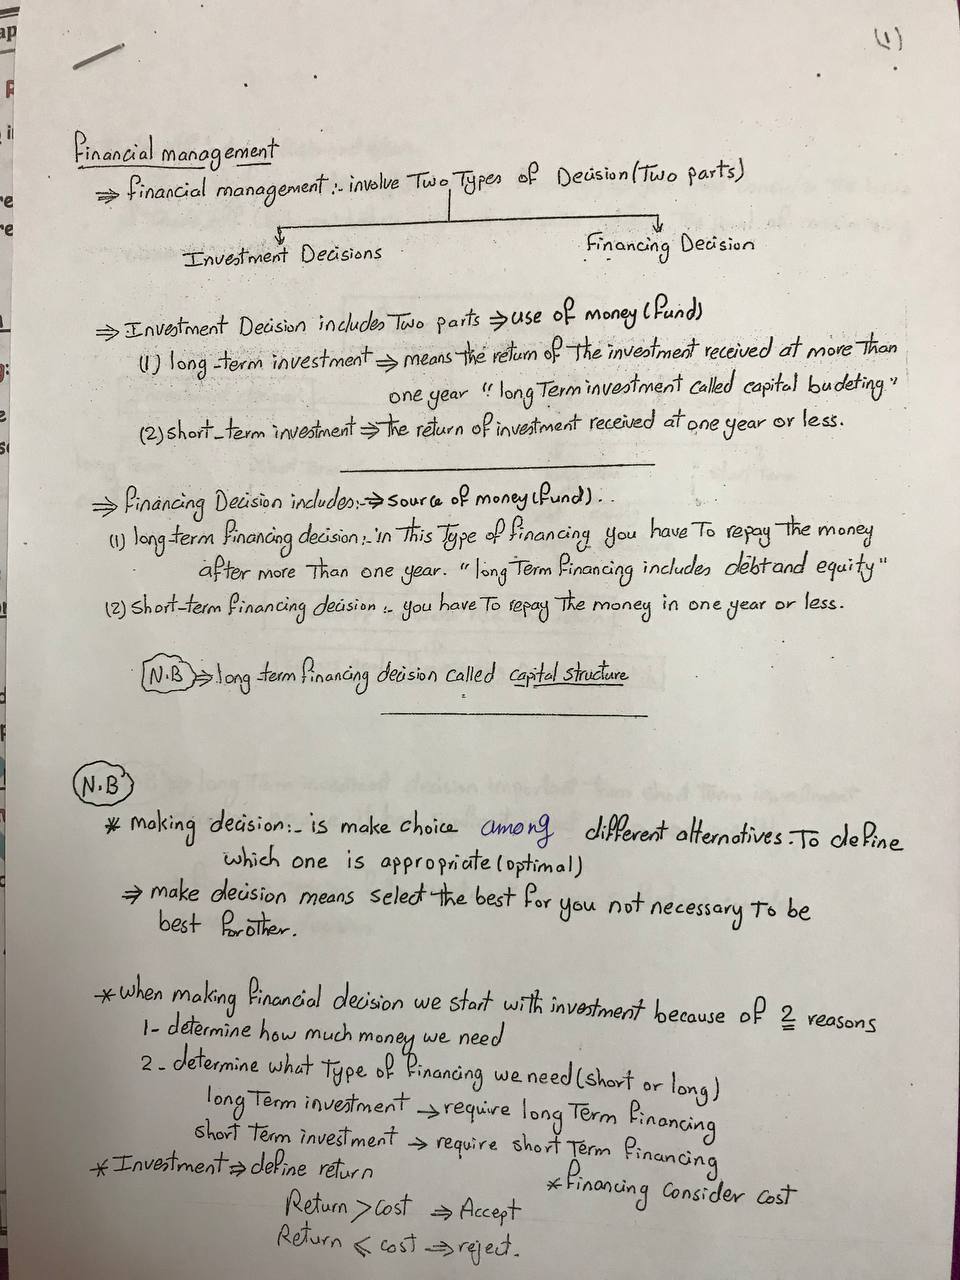 (1)
Financial management
⇒ financial management :- involve Two Types of Decision (Two parts)
Investment Decisions
Financing Decision
⇒ Investment Decision includes Two parts ⇒ use of money (fund)
(1) long-term investment ⇒ means the return of the investment received at more than
one year "long Term investment called capital budeting"
(2) short-term investment ⇒ the return of investment received at one year or less.
⇒ financing Decision includes :⇒ source of money (fund) ..
(1) long-term financing decision :- in this Type of financing you have To repay the money
after more than one year. "long Term financing includes debt and equity"
(2) Short-term financing decision :- you have To repay the money in one year or less.
N.B ⇒ long term financing decision called capital structure
N.B
* making decision :- is make choice among different alternatives. To define
which one is appropriate (optimal)
⇒ make decision means select the best for you not necessary To be
best for other.
* when making financial decision we start with investment because of 2 reasons
1- determine how much money we need
2- determine what Type of financing we need (short or long)
long Term investment → require long Term financing
short Term investment → require short Term financing
* Investment ⇒ define return
* financing consider cost
Return > cost ⇒ Accept
Return < cost ⇒ reject.